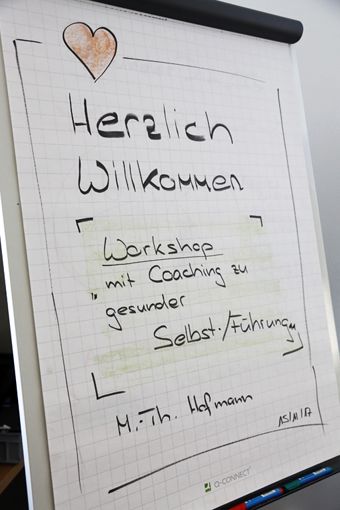 Herzlich
Willkommen
Workshop
mit Coaching zu
gesunder
Selbst-/Führung
M.-Th. Hofmann
15/11/17
Q-CONNECT